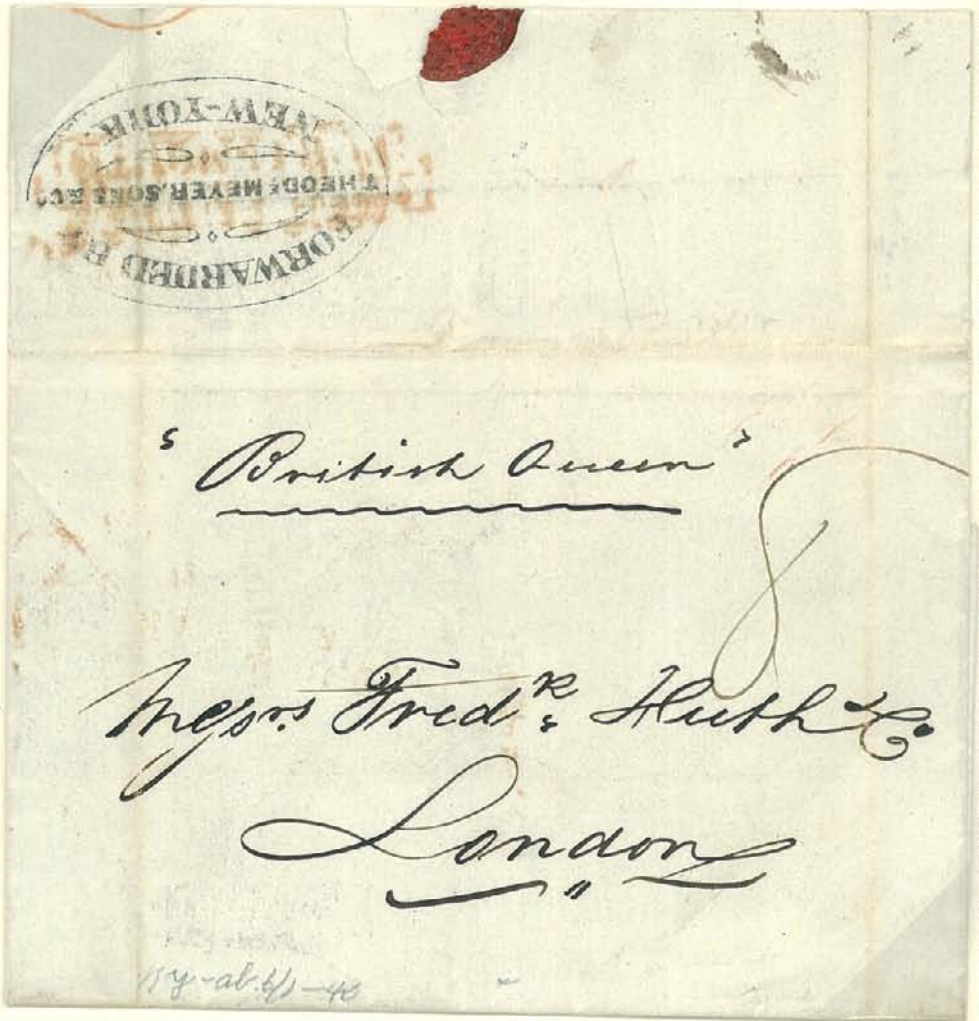 FORWARDED BY
THEOD: MEYER, SONS & Co
NEW-YORK
"British Queen"
8
Messrs Fredk: Huth & Co.
London